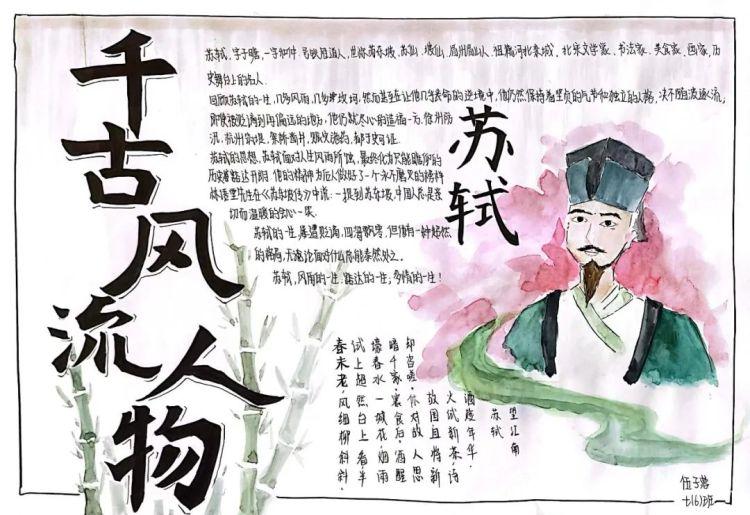 千古风流人物
苏轼
苏轼，字子瞻，一字和仲，号铁冠道人，世称苏东坡、苏仙、坡仙，眉州眉山人，祖籍河北栾城，北宋文学家、书法家、美食家、画家，历
史舞台上的名人。
回顾苏轼的一生，几多风雨，几多坎坷，然而甚至在让他几乎丧命的逆境中，他仍然保持着坚贞的气节和独立的人格，决不随波逐流，
即便被贬谪到再偏远的地方，他仍就尽心的造福一方。徐州防
汛，杭州筑堤，惠州凿井，赈灾施药，都予史可证。
苏轼的思想，苏轼面对人生风雨所蚀，最终化为
历史旷达开明，他的精神为后人做好了一个永不磨灭的榜样
林语堂先生在《苏东坡传》中说：一提到苏东坡，中国人总是亲
切而温暖的会心一笑。
苏轼的一生，屡遭贬谪，四海飘零，但有一种超然
的，无论面对什么总能泰然处之。
苏轼，风雨的一生，豁达的一生，多情的一生！
望江南
苏轼
春未老，风细柳斜斜。
试上超然台上看，半
壕春水一城花。烟雨
暗千家。寒食后，酒醒
却咨嗟。休对故人思
故国，且将新
火试新茶。诗
酒趁年华。
伍子蓉
七(6)班